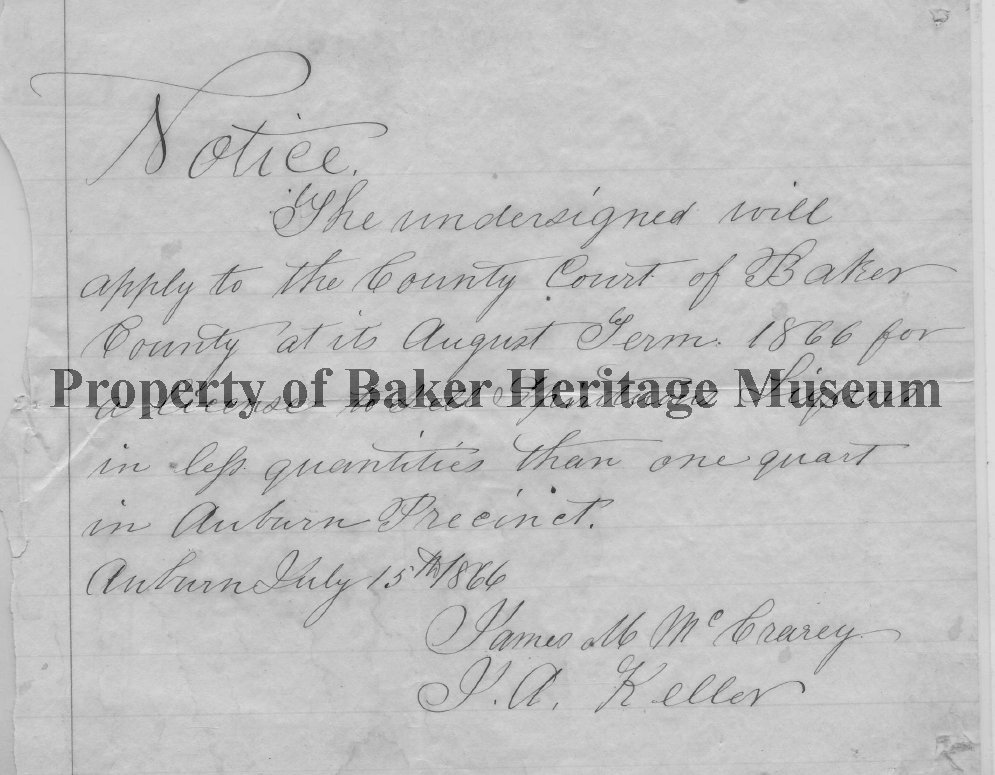 Notice.
The undersigned will
apply to the County Court of Baker
County at its August Term. 1866 for
Property of Baker Heritage Museum
a License to sell Spirituous Liquors
in less quantities than one quart
in Auburn Precinct.
Auburn July 15th 1866
James M McCrarey
J. A. Keller